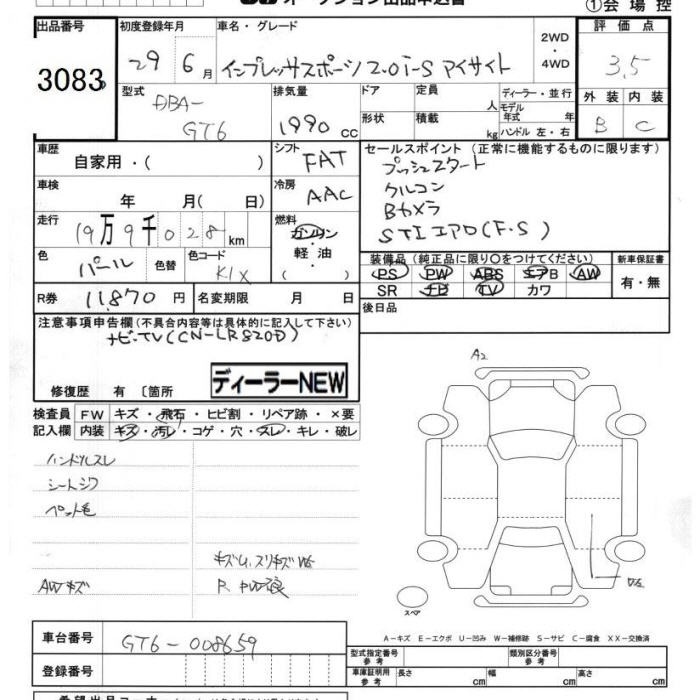 オークション出品申込書
①会場控
出品番号 初度登録年月 車名・グレード 2WD・4WD 評価点
3083 29 6月 インプレッサスポーツ2.0i-S アイサイト 3.5
型式 排気量 ドア 定員 人 ディーラー・並行 外装 内装
モデル年式 年
DBA-
GT6 1990cc 形状 積載 kg ハンドル 左・右 B C
車歴 自家用・( ) シフト FAT セールスポイント(正常に機能するものに限ります)
プッシュスタート
車検 年 月(日) 冷房 AAC クルコン
Bカメラ
走行 19万9千028km 燃料 ガソリン・軽油・( ) STIエアロ(F.S)
色 パール 色替 色コード K1X 装備品(純正品に限り○をつけてください) 新車保証書
PS PW ABS エアB AW 有・無
SR ナビ TV カワ
R券 11,870円 名変期限 月 日 後日品
注意事項申告欄(不具合内容等は具体的に記入して下さい)
ナビ・TV(CN-LR820D)
修復歴 有 〔箇所
ディーラーNEW
A2
検査員 FW キズ・飛石・ヒビ割・リペア跡・×要
記入欄 内装 キズ・汚レ・コゲ・穴・スレ・キレ・破レ
ハンドルスレ
シートシワ
ペット毛
キズ小、スリキズ
AWキズ
スペア
A-キズ E-エクボ U-凹み W-補修跡 S-サビ C-腐食 XX-交換済
車台番号 GT6-008659 型式指定番号 参考 類別区分番号 参考
登録番号 車庫証明用 参考 長さ cm 幅 cm 高さ cm